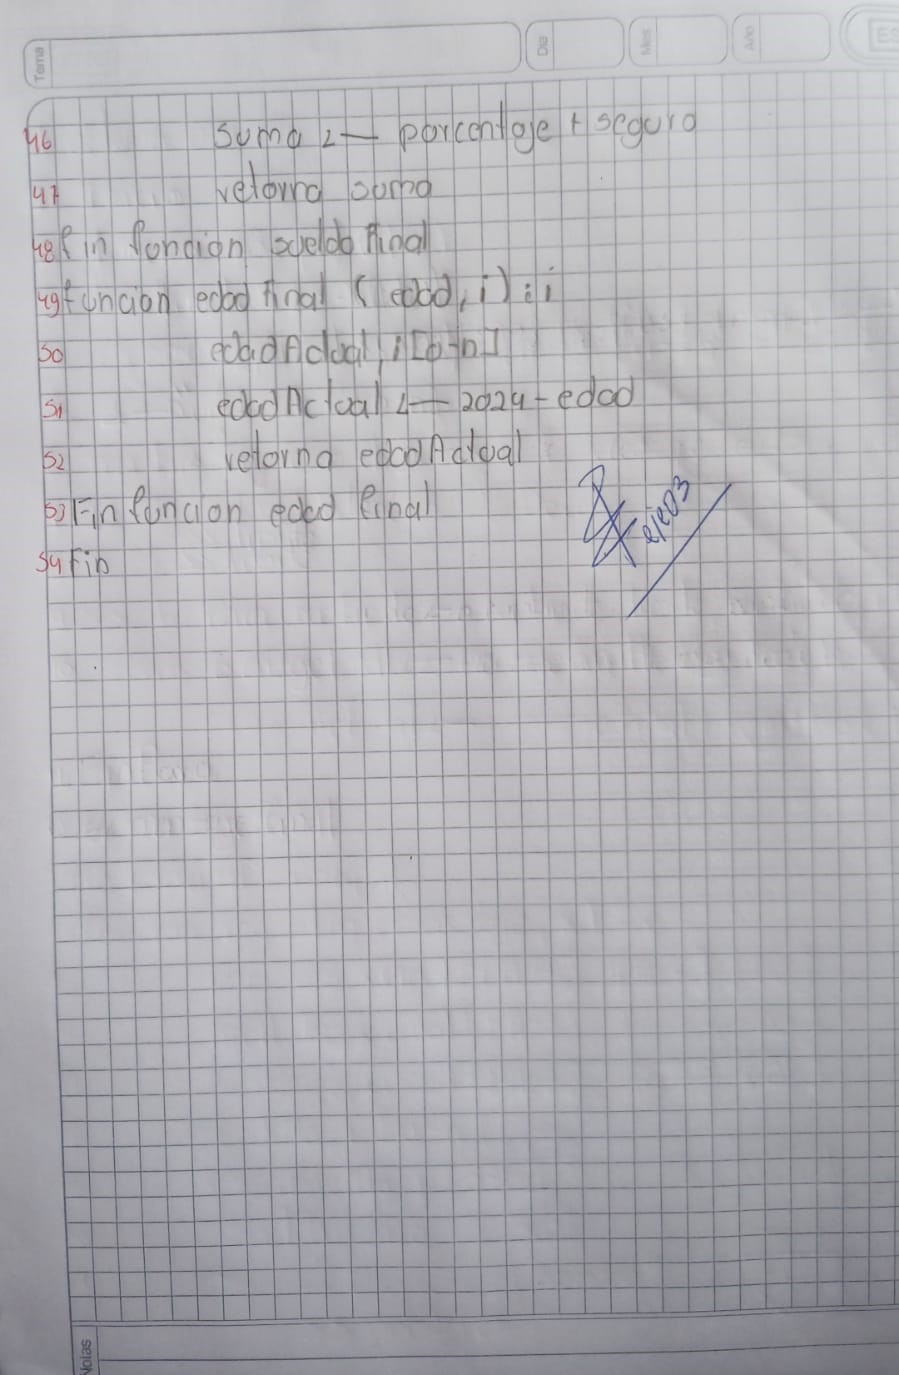 Tema
Dia
Mes
Año
46 suma ← porcentage + seguro
47 retorna suma
48 fin función sueldo final
49 función edad final (edad, i): i
50 edadActual, i [0-n]
51 edadActual ← 2024 - edad
52 retorna edadActual
53 Fin función edad final
54 Fin
ejec03
Notas